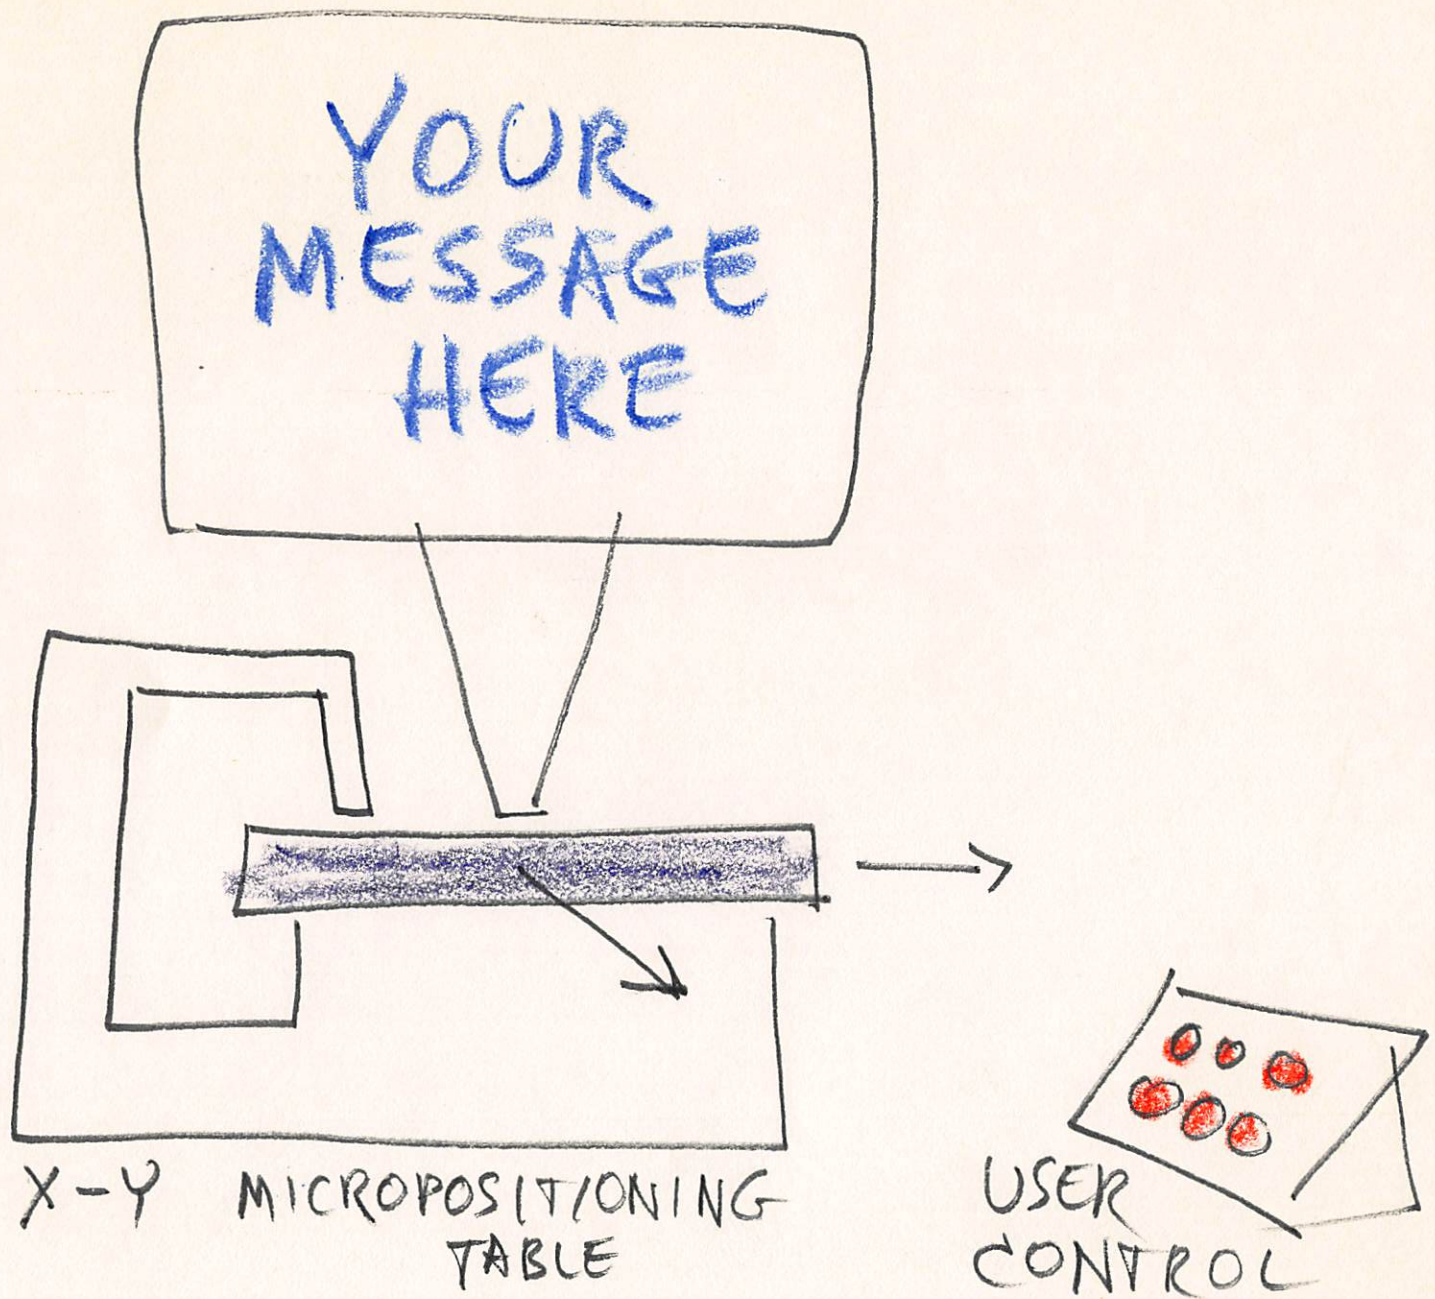 YOUR
MESSAGE
HERE
X-Y MICROPOSITIONING
TABLE
USER
CONTROL